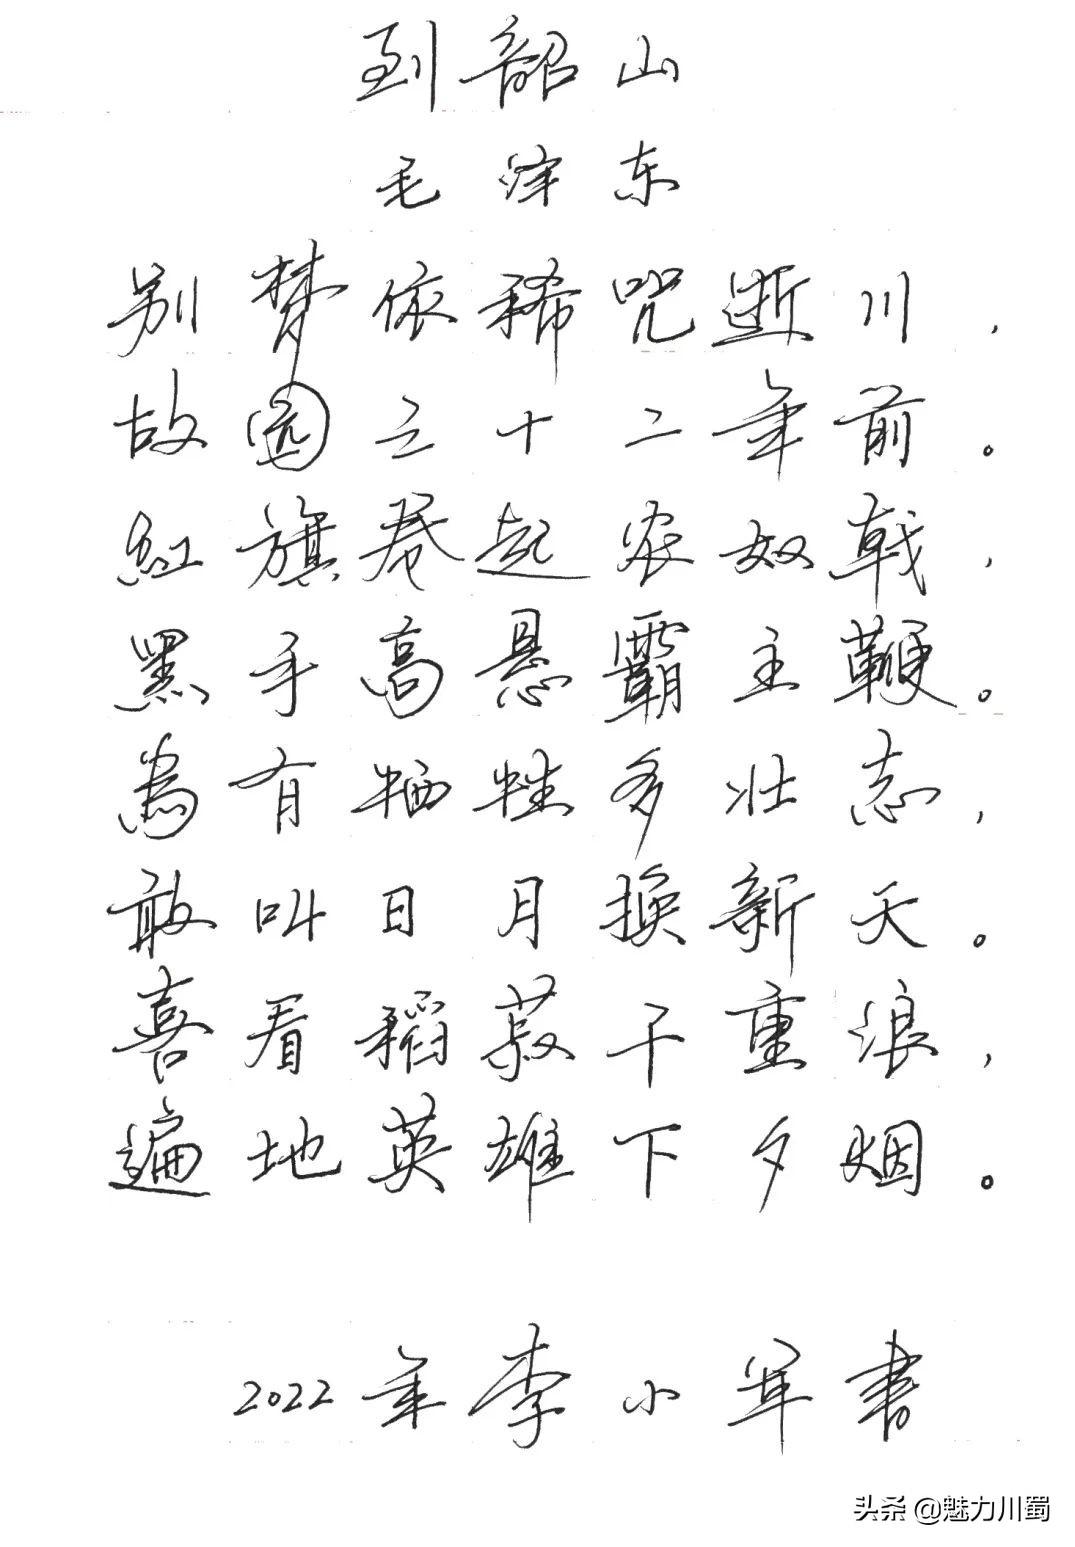 到韶山
毛泽东
别梦依稀咒逝川，
故园三十二年前。
紅旗卷起农奴戟，
黑手高悬霸主鞭。
為有牺牲多壮志，
敢叫日月换新天。
喜看稻菽千重浪，
遍地英雄下夕烟。
2022年李小军書
头条 @魅力川蜀